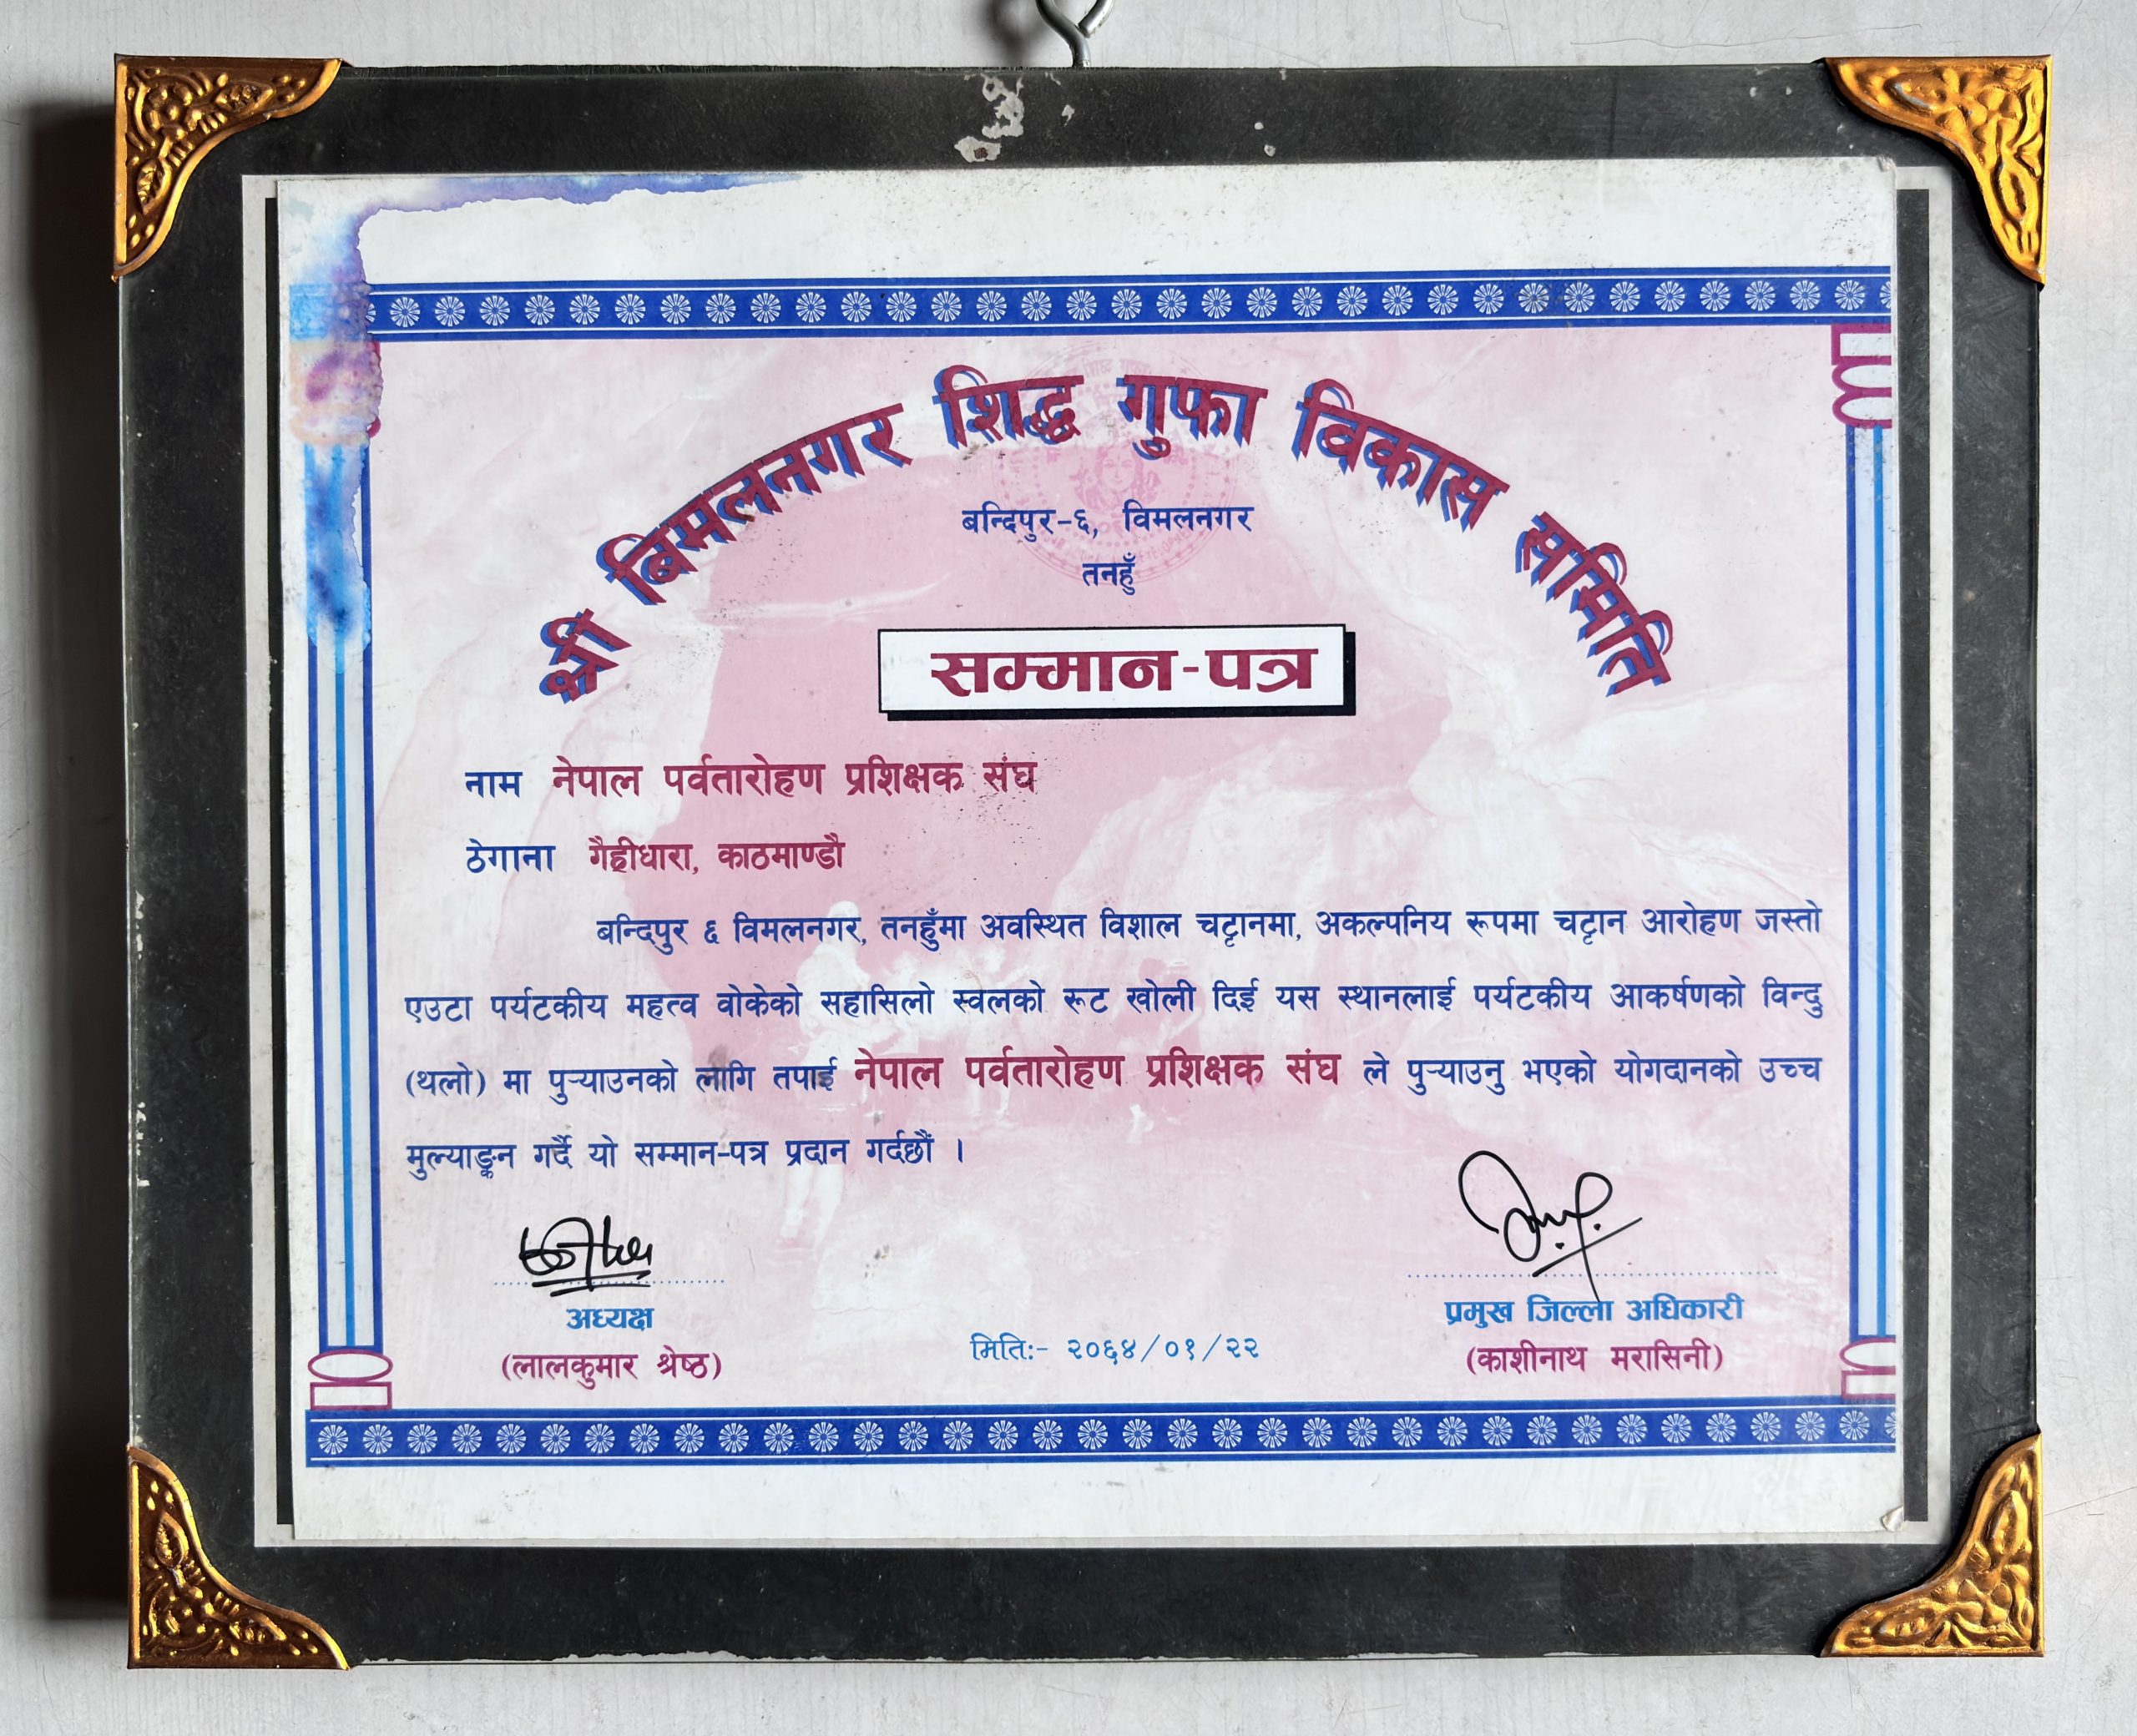 श्री बिमलनगर शिद्ध गुफा विकास समिति
बन्दिपुर-६, विमलनगर
तनहुँ
सम्मान-पत्र
नाम नेपाल पर्वतारोहण प्रशिक्षक संघ
ठेगाना गैह्रीधारा, काठमाण्डौ
बन्दिपुर ६ विमलनगर, तनहुँमा अवस्थित विशाल चट्टानमा, अकल्पनिय रूपमा चट्टान आरोहण जस्तो
एउटा पर्यटकीय महत्व वोकेको सहासिलो स्वलको रूट खोली दिई यस स्थानलाई पर्यटकीय आकर्षणको विन्दु
(थलो) मा पुऱ्याउनको लागि तपाई नेपाल पर्वतारोहण प्रशिक्षक संघ ले पुऱ्याउनु भएको योगदानको उच्च
मुल्याङ्कन गर्दै यो सम्मान-पत्र प्रदान गर्दछौं ।
अध्यक्ष
(लालकुमार श्रेष्ठ)
मितिः- २०६४/०१/२२
प्रमुख जिल्ला अधिकारी
(काशीनाथ मरासिनी)